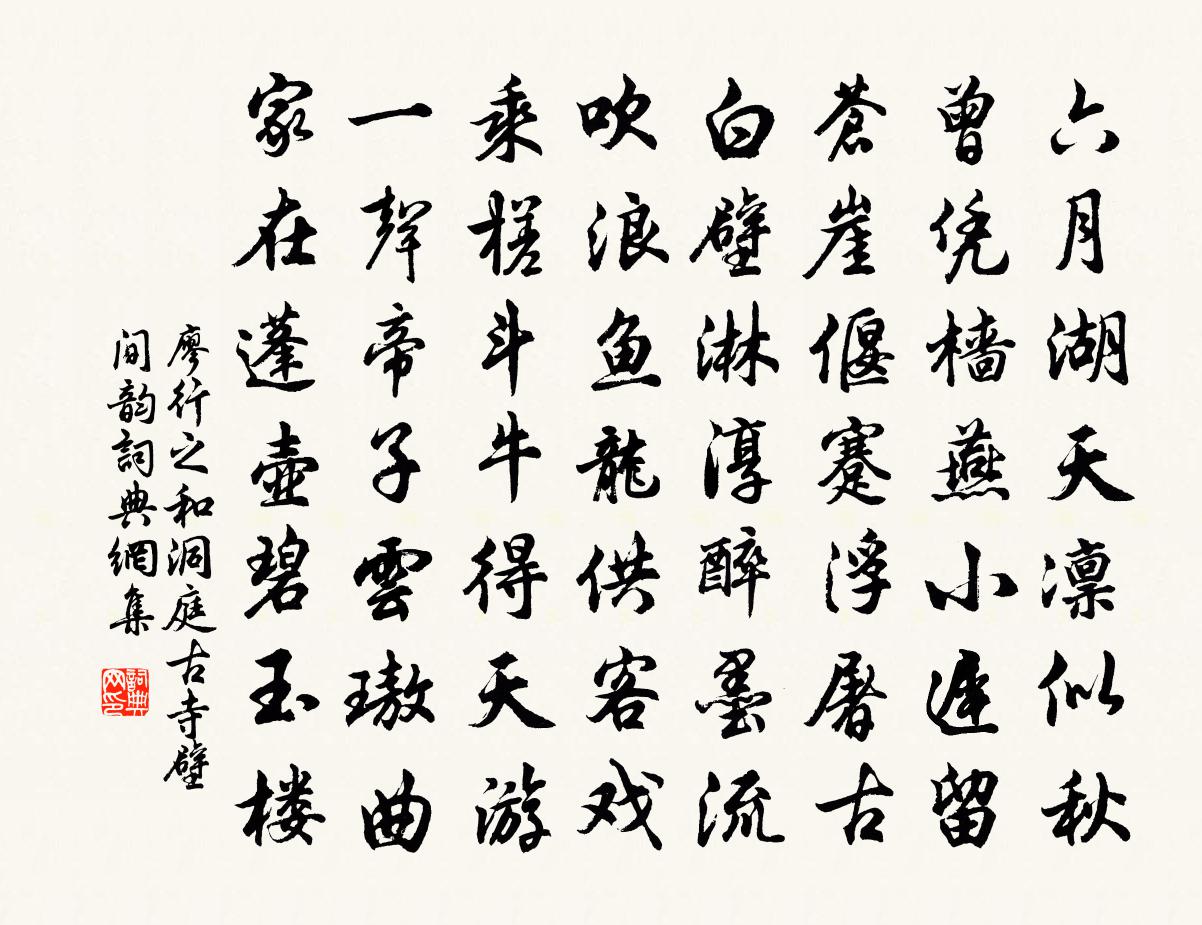 六月湖天凛似秋
曾凭樯燕小遲留
蒼崖偃蹇浮屠古
白壁淋淳醉墨流
吹浪鱼龍供客戏
乘槎斗牛得天游
一聲帝子雲璈曲
家在蓬壺碧玉楼
廖行之和洞庭古寺壁
间韵詞典網集
詞典网印